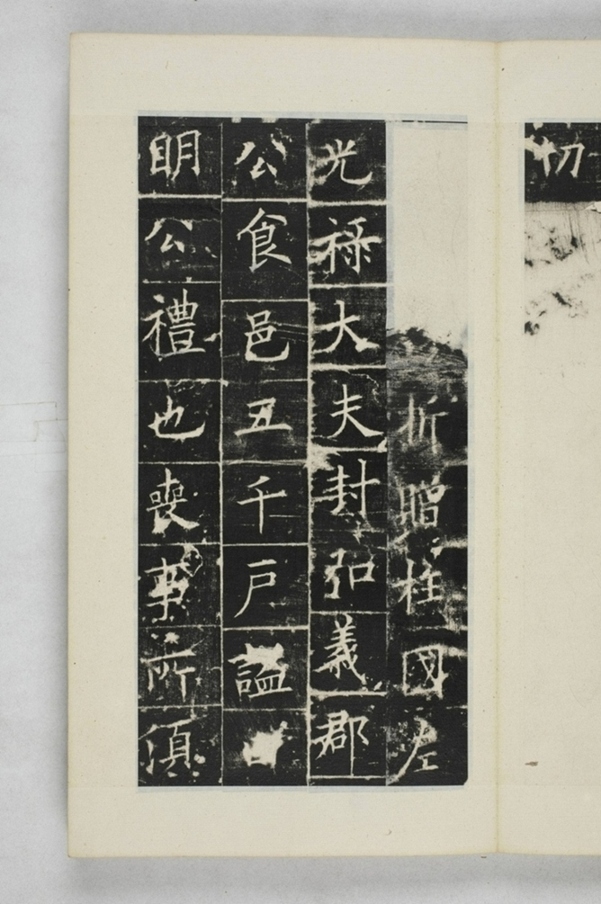 切
折贈柱國左
光祿大夫封弘義郡
公食邑五千戶謚曰
明公禮也喪事所須